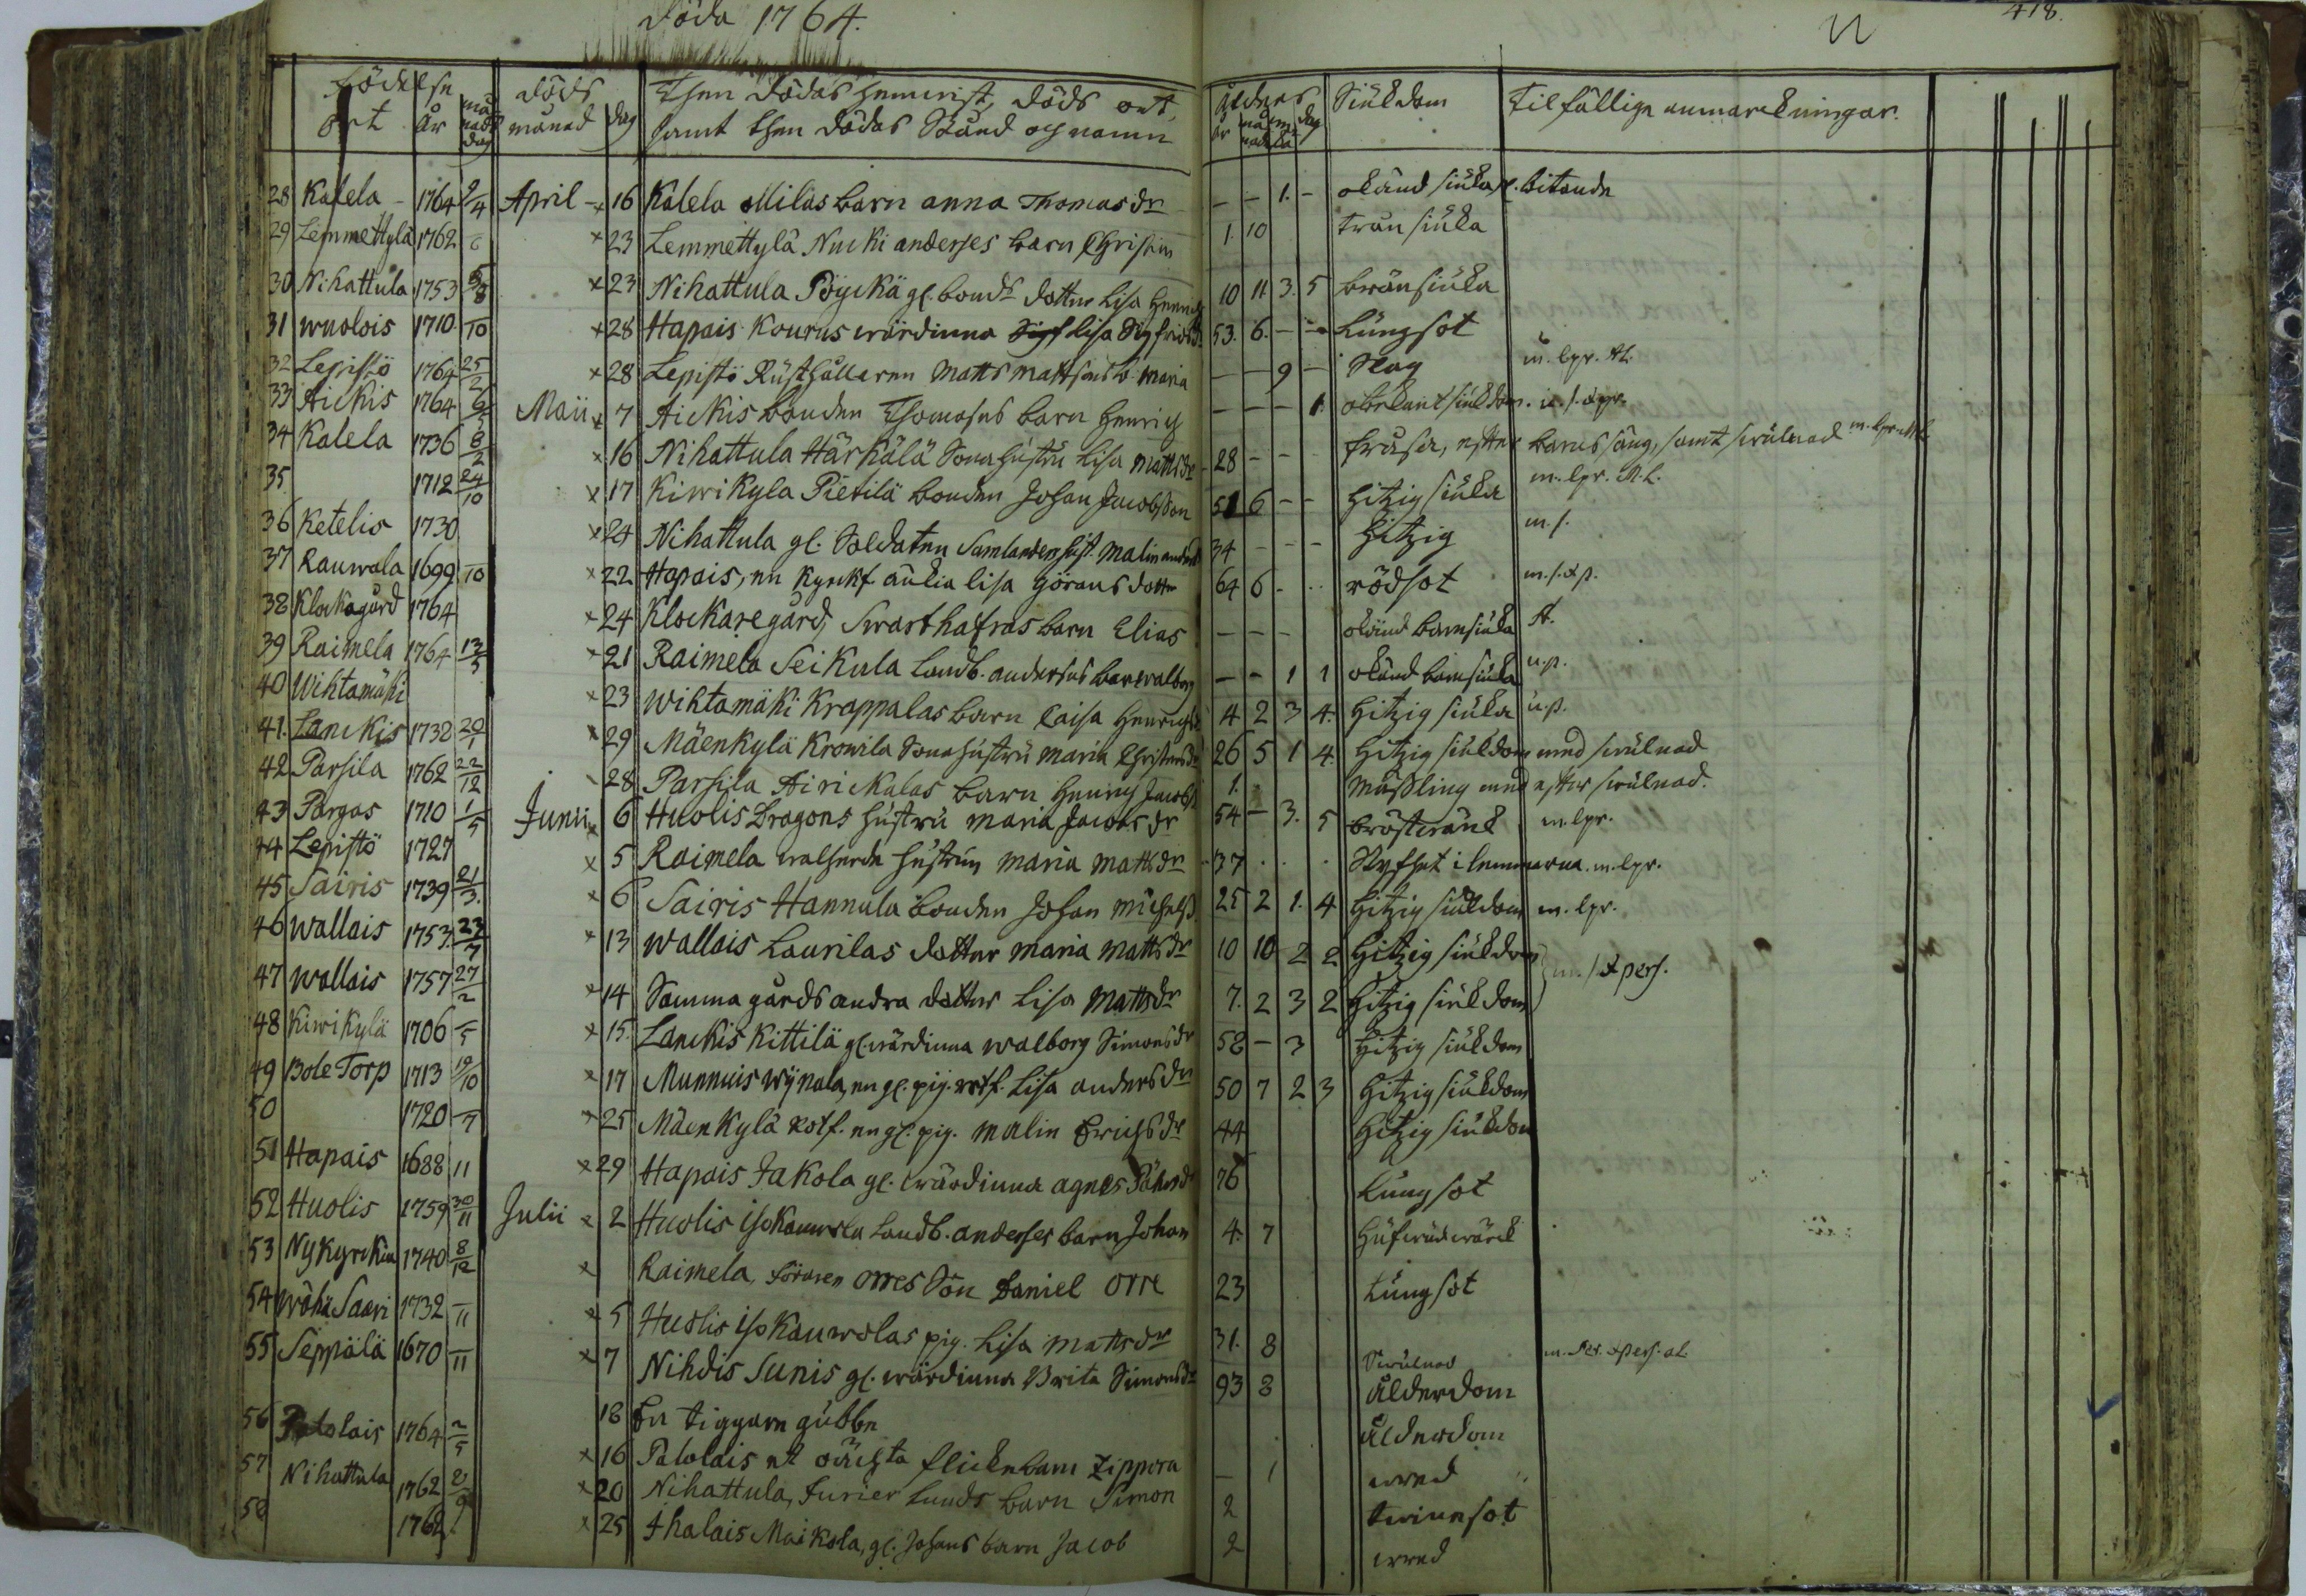 Döda 1764.
418.
Födelse ort år månads dag döds månad dag Then dödas hemvist, döds ort, samt then dödas Stånd och namn Ålders år månad dag Siukdom Tilfällige anmärckningar.
28 Kalela 1764 9/4 April 16 Kalela Millas barn anna Thomas dr - - 1. - okänd siuka bitande
29 Lemmettylä 1762 23 Lemmettylä Nucki anderses barn Christin 1. 10 tran siuka
30 Nihattula 1753 5/8 23 Nihattula Pöyckä gl. bonds dotter Lisa Henrichs 10 11 3. 5 bränsiuka
31 wuolois 1710 10 28 Hapais Kourus wärdinna Lisa Sigfrids dr 53. 6. - - Lungsot
32 Lepistö 1764 25/2 28 Lepistö Rusthållaren Matts Mattsons b. Maria - - 9 - Slag
33 Aickis 1764 6/5 Maii 7 Aickis bonden Thomases barn Henrich - - - 1 obekant siukdom.
34 Kalela 1736 8/2 16 Nihattula Härkälä Sonahustru Lisa Mattsdr 28 - - fråsa, efter barnsäng, samt swulnad
35 1712 24/10 17 Kiwikyla Pietilä bonden Johan Jacobsson 51 6 - - hitzig siuka
36 Ketelis 1730 24 Nihattula gl. Soldaten Samlanders hust. Malin 34 - - - hitzig
37 Rauwola 1699 10 22 Hapais, en Kyrckf änkia Lisa Görans dotter 64 6 rödsot
38 Klockagård 1764 24 Klockaregård, Swarthafras barn Elias - - - okänd barnsiuka
39 Raimela 1764 13/5 21 Raimela Seikula Landb. anderses barn walborg - - 1 1 okänd barnsiuka
40 Wihtamäki 23 Wihtamäki Krappalas barn Caisa Henrichs dr 4 2 3 4. hitzig siuka
41. Lanckis 1732 20/1 29 Mäenkylä Krowila Sonahustru Maria Christers dr 26 5 1 4. hitzig siukdom med swulnad
42 Parsila 1762 22/12 28 Parsila Airickalas barn Henrich Jacobs 1. Mässling med efter swulnad.
43 Pargas 1710 1/5 Junii 6 Huolis Dragons hustru Maria Jacobs dr 54 - 3. 5 bröstwärck m. lpr.
44 Lepistö 1727 5 Raimela hustrun Maria Mattsdr 37 Styfhet i lemmarna. m. lpr.
45 Sairis 1739 21/3. 6 Sairis Hannula bonden Johan Michels 25 2 1. 4 hitzig siukdom m. lpr.
46 Wallais 1753. 23/7 13 Wallais Laurilas dotter Maria Mattsdr 10 10 2 2 hitzig siukdom
47 Wallais 1757 27/2 14 Samma gårds andra dotter Lisa Mattsdr 7. 2 3 2 hitzig siukdom
48 Kiwikylä 1706 5 15. Lanckis Kittilä gl. wärdinna Walborg Simons dr 58 - 3 hitzig siukdom
49 Bole Torp 1713 19/10 17 Munnuis Wÿnola, en gl. pig. rotf. Lisa anders dr 50 7 2 3 hitzig siukdom
50 1720 7 25 Mäenkylä rotf. en gl. pig. Malin Erichs dr 44 hitzig siukdom
51 Hapais 1688 11 29 Hapais Jakola gl. wärdinna agnes 76 Lungsot
52 Huolis 1759 30/11 Julii 2 Huolis isokauwola Landb. anderses barn Johan 4. 7 Hufwudwärck
53 Nykyrckia 1740 8/12 Raimela, Orres Son Daniel Orre 23 Lungsot
54 Wäha Saari 1732 11 5 Huolis iso Kauwolas pig. Lisa Mattsdr 31. 8 Swulnad
55 Seppälä 1670 11 7 Nihdis Junis gl. wärdinna Brita Simonsdr 93 8 ålderdom
18 En tiggare gubbe ålderdom
56 Palolais 1764 2/5 16 Palolais et oächta flickebarn Zippora - 1 wred
57 Nihattula 1762 2/9 20 Nihattula, Furier Lunds barn Simon 2 twinesot
58 1762 25 Ihalais Maikola, gl. Johans barn Jacob 2 wred